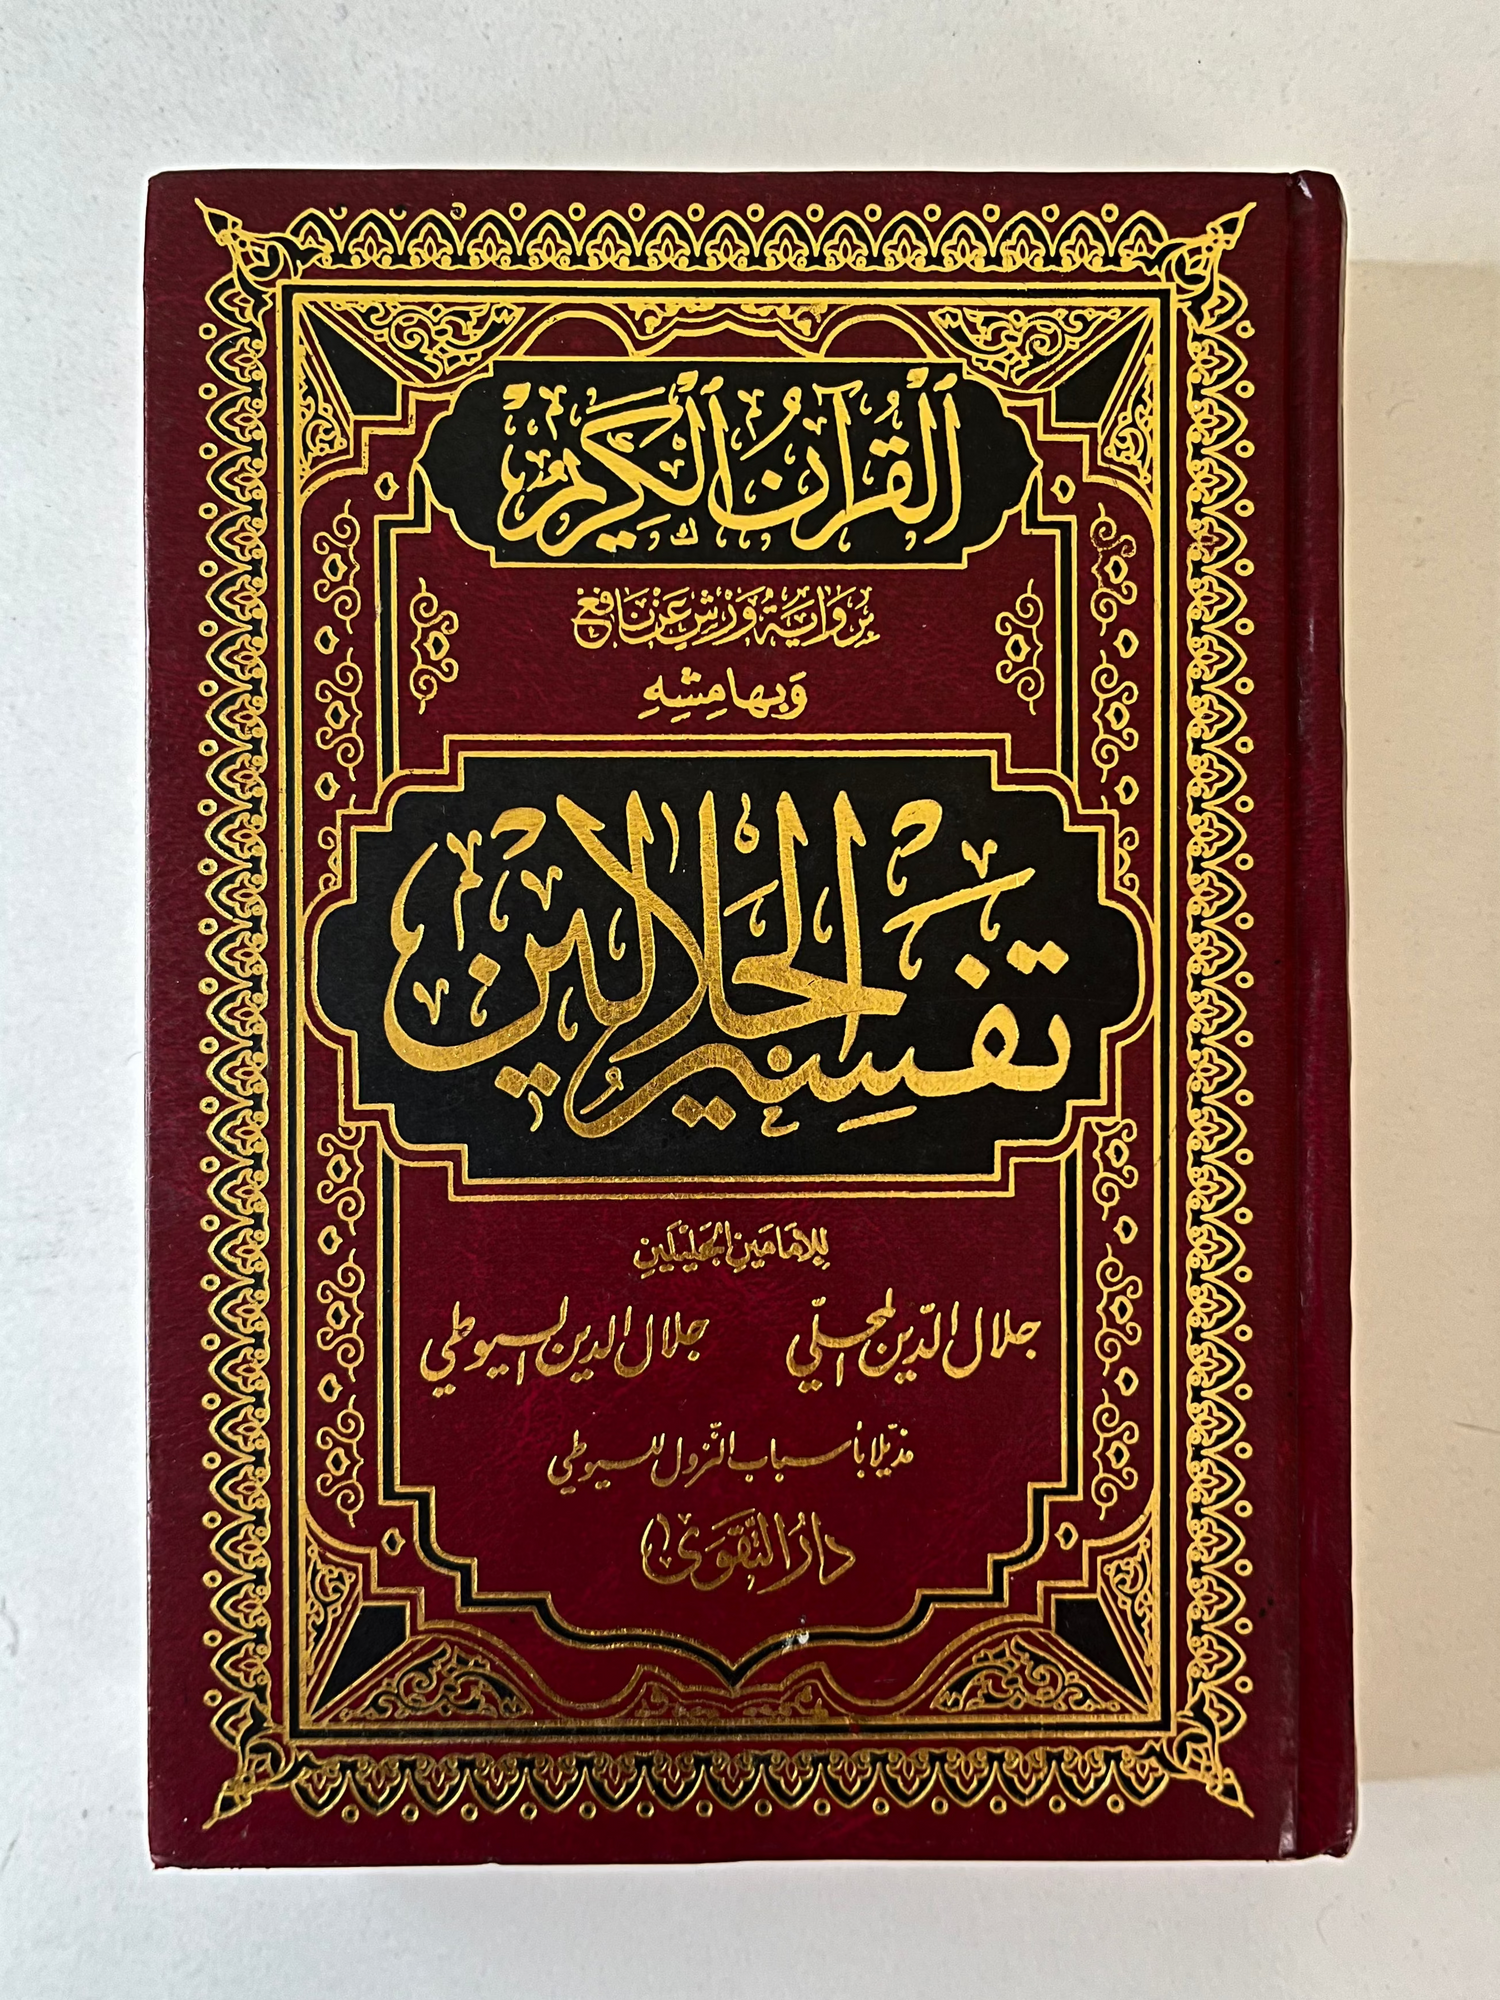 القُرْآنُ الْكَرِيمُ
بِرِوَايَةِ وَرْشٍ عَنْ نَافِعٍ
وَبِهَامِشِهِ
تَفْسِيرُ الجَلَالَيْنِ
لِلإمَامَينِ الجَلِيلَينِ
جلال الدّين المحلّي جلال الدين السيوطي
مذيّلا بأسباب النّزول للسيوطي
دَارُ التَّقْوَى